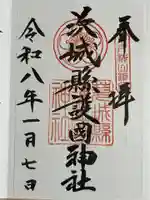 奉拝
茨城縣護國神社
令和八年一月七日